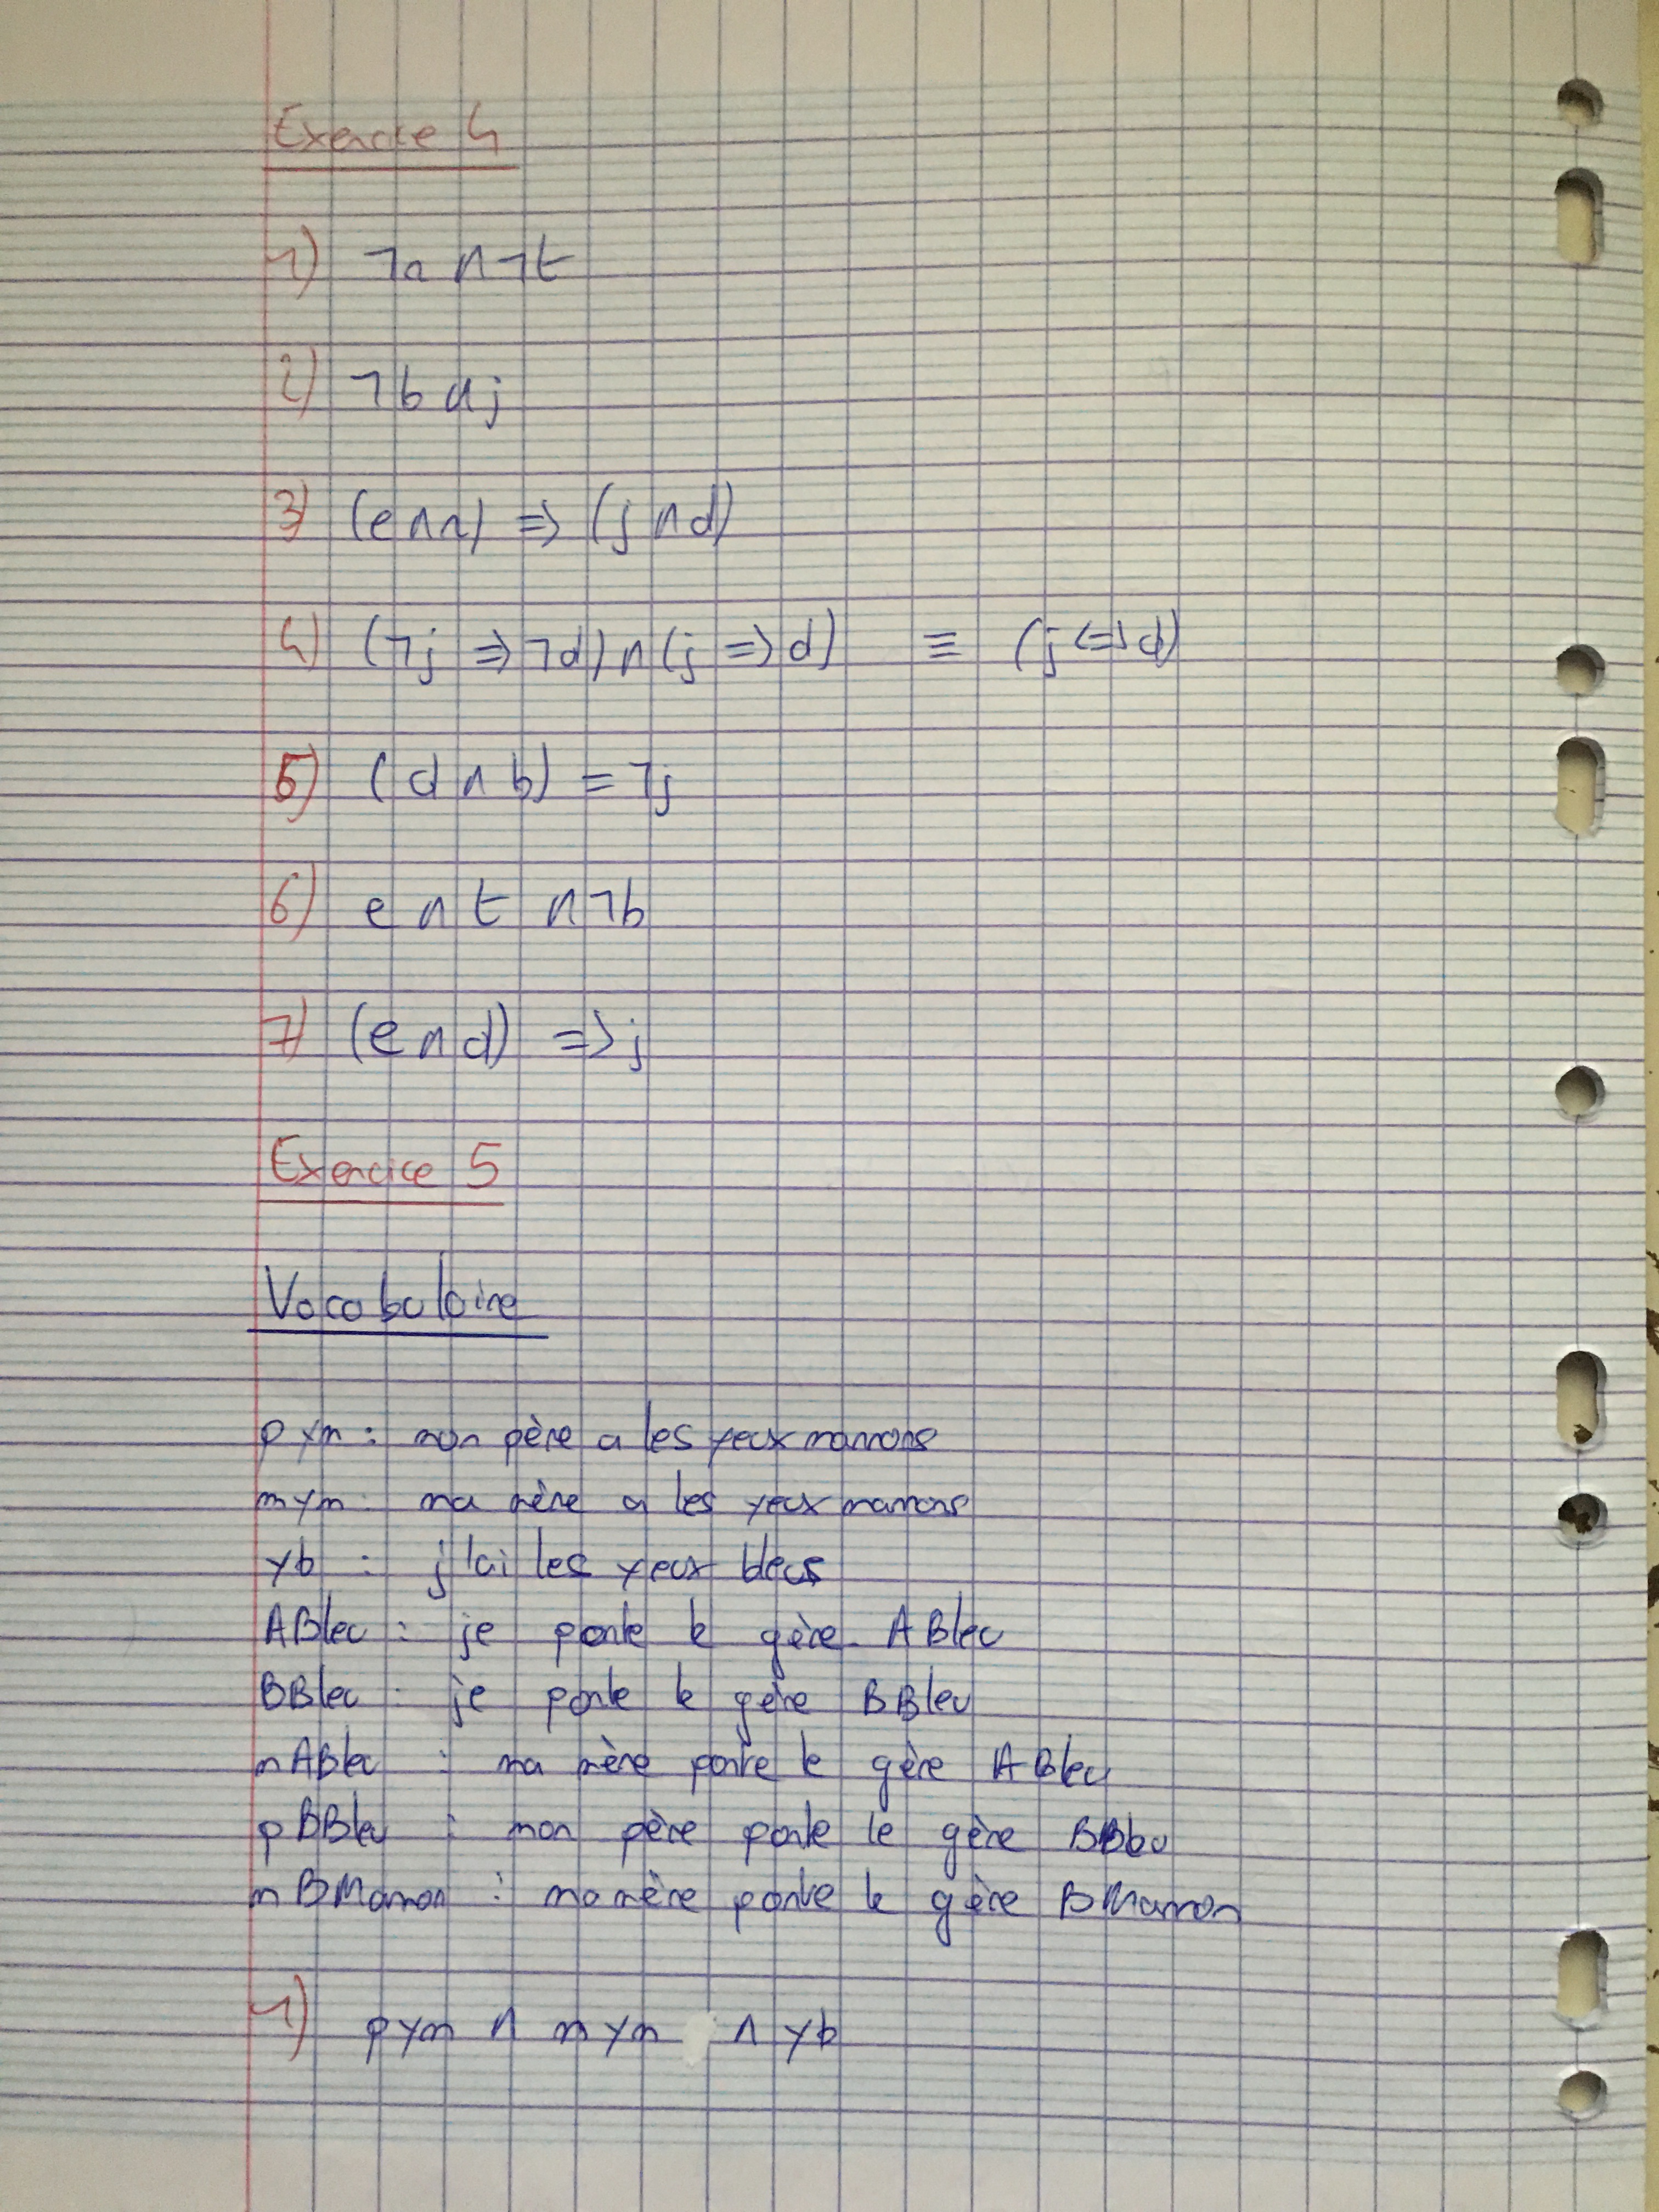 Exercice 4
1) ¬a ∧ ¬t
2) ¬b ∧ j
3) (e ∧ r) => (j ∧ d)
4) (¬j => ¬d) ∧ (j => d) ≡ (j <=> d)
5) (d ∧ b) = ¬j
6) e ∧ t ∧ ¬b
7) (e ∧ d) => j
Exercice 5
Vocabulaire
pym : mon père a les yeux marrons
mym : ma mère a les yeux marrons
yb : j'ai les yeux bleus
ABleu : je porte le gène ABleu
BBleu : je porte le gène BBleu
mABleu : ma mère porte le gène ABleu
pBBleu : mon père porte le gène BBleu
mBMarron : ma mère porte le gène BMarron
1) pym ∧ mym ∧ yb